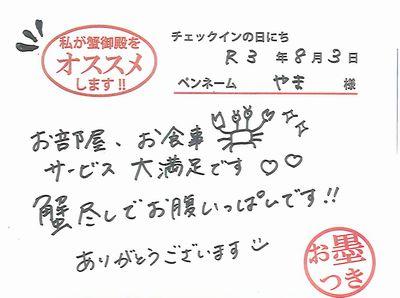 私が蟹御殿を
オススメ
します!!
チェックインの日にち
R3年8月3日
ペンネーム やま 様
お部屋、お食事
サービス 大満足です♡♡
蟹尽しでお腹いっぱいです!!
ありがとうございます
お墨
つき